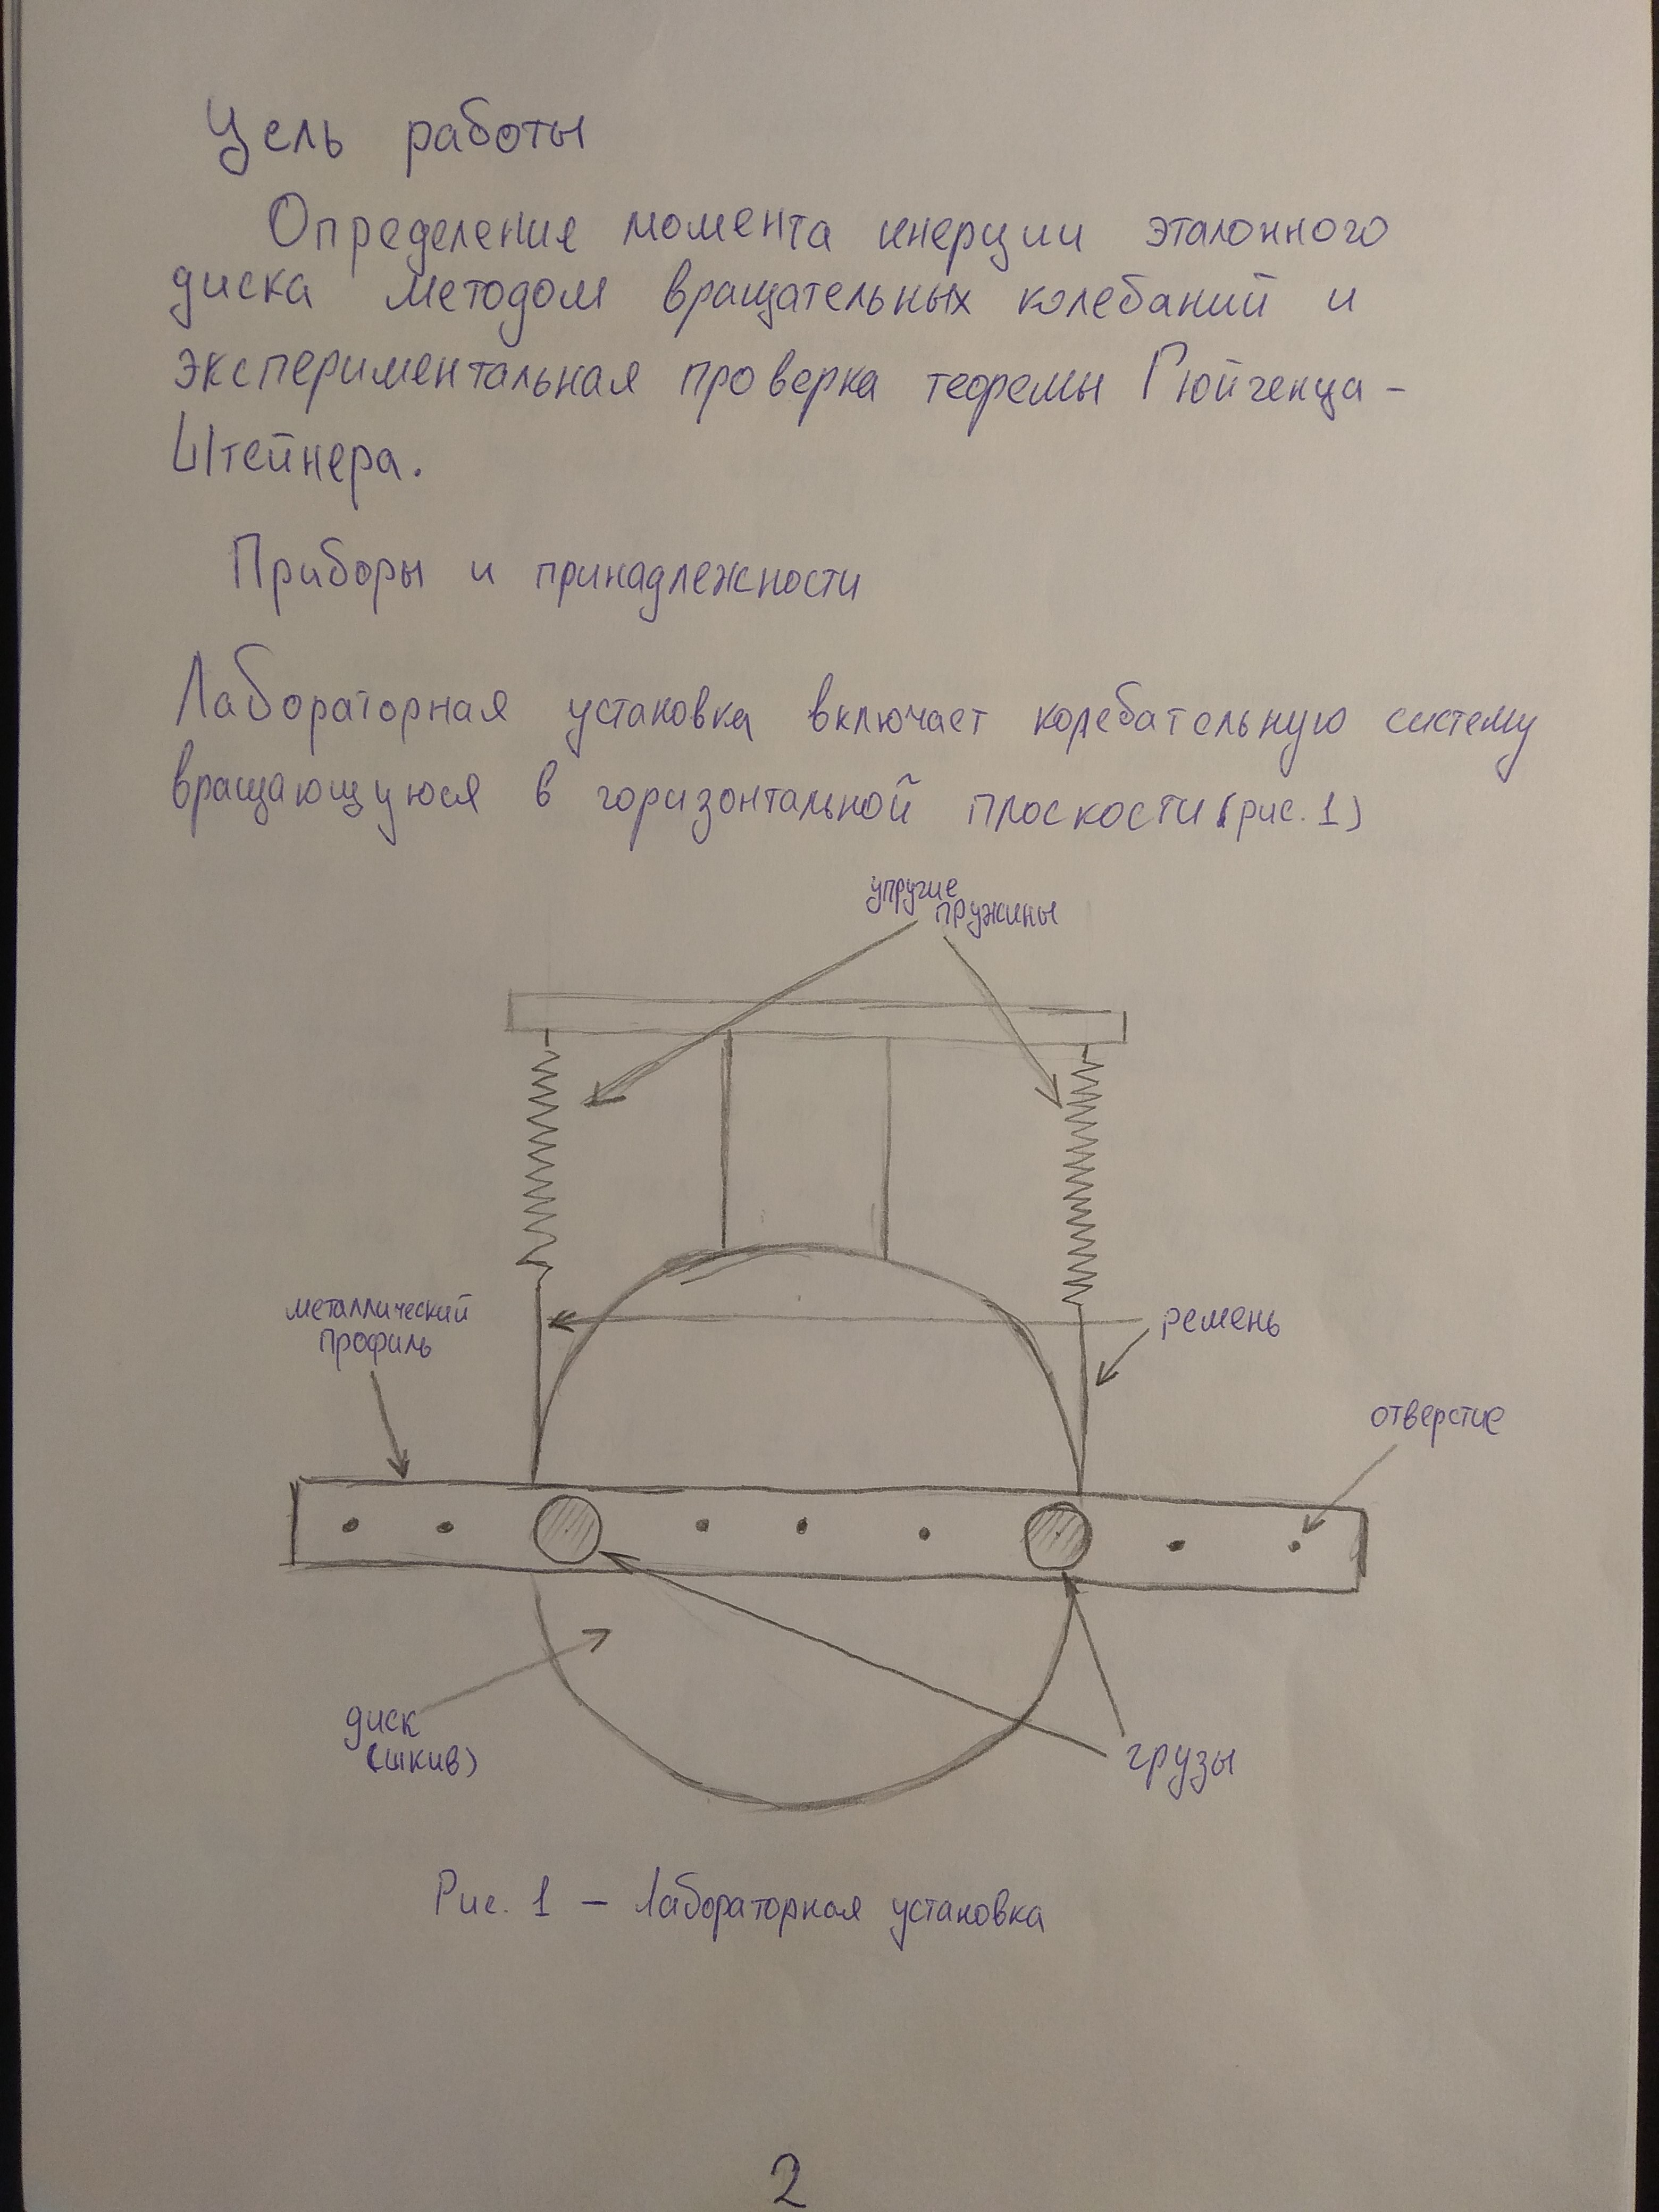 Цель работы
Определение момента инерции эталонного
диска методом вращательных колебаний и
экспериментальная проверка теоремы Гюйгенца-
Штейнера.
Приборы и принадлежности
Лабораторная установка включает колебательную систему
вращающуюся в горизонтальной плоскости (рис. 1)
упругие
пружины
металлический
профиль
ремень
отверстие
диск
(шкив)
грузы
Рис. 1 – Лабораторная установка
2